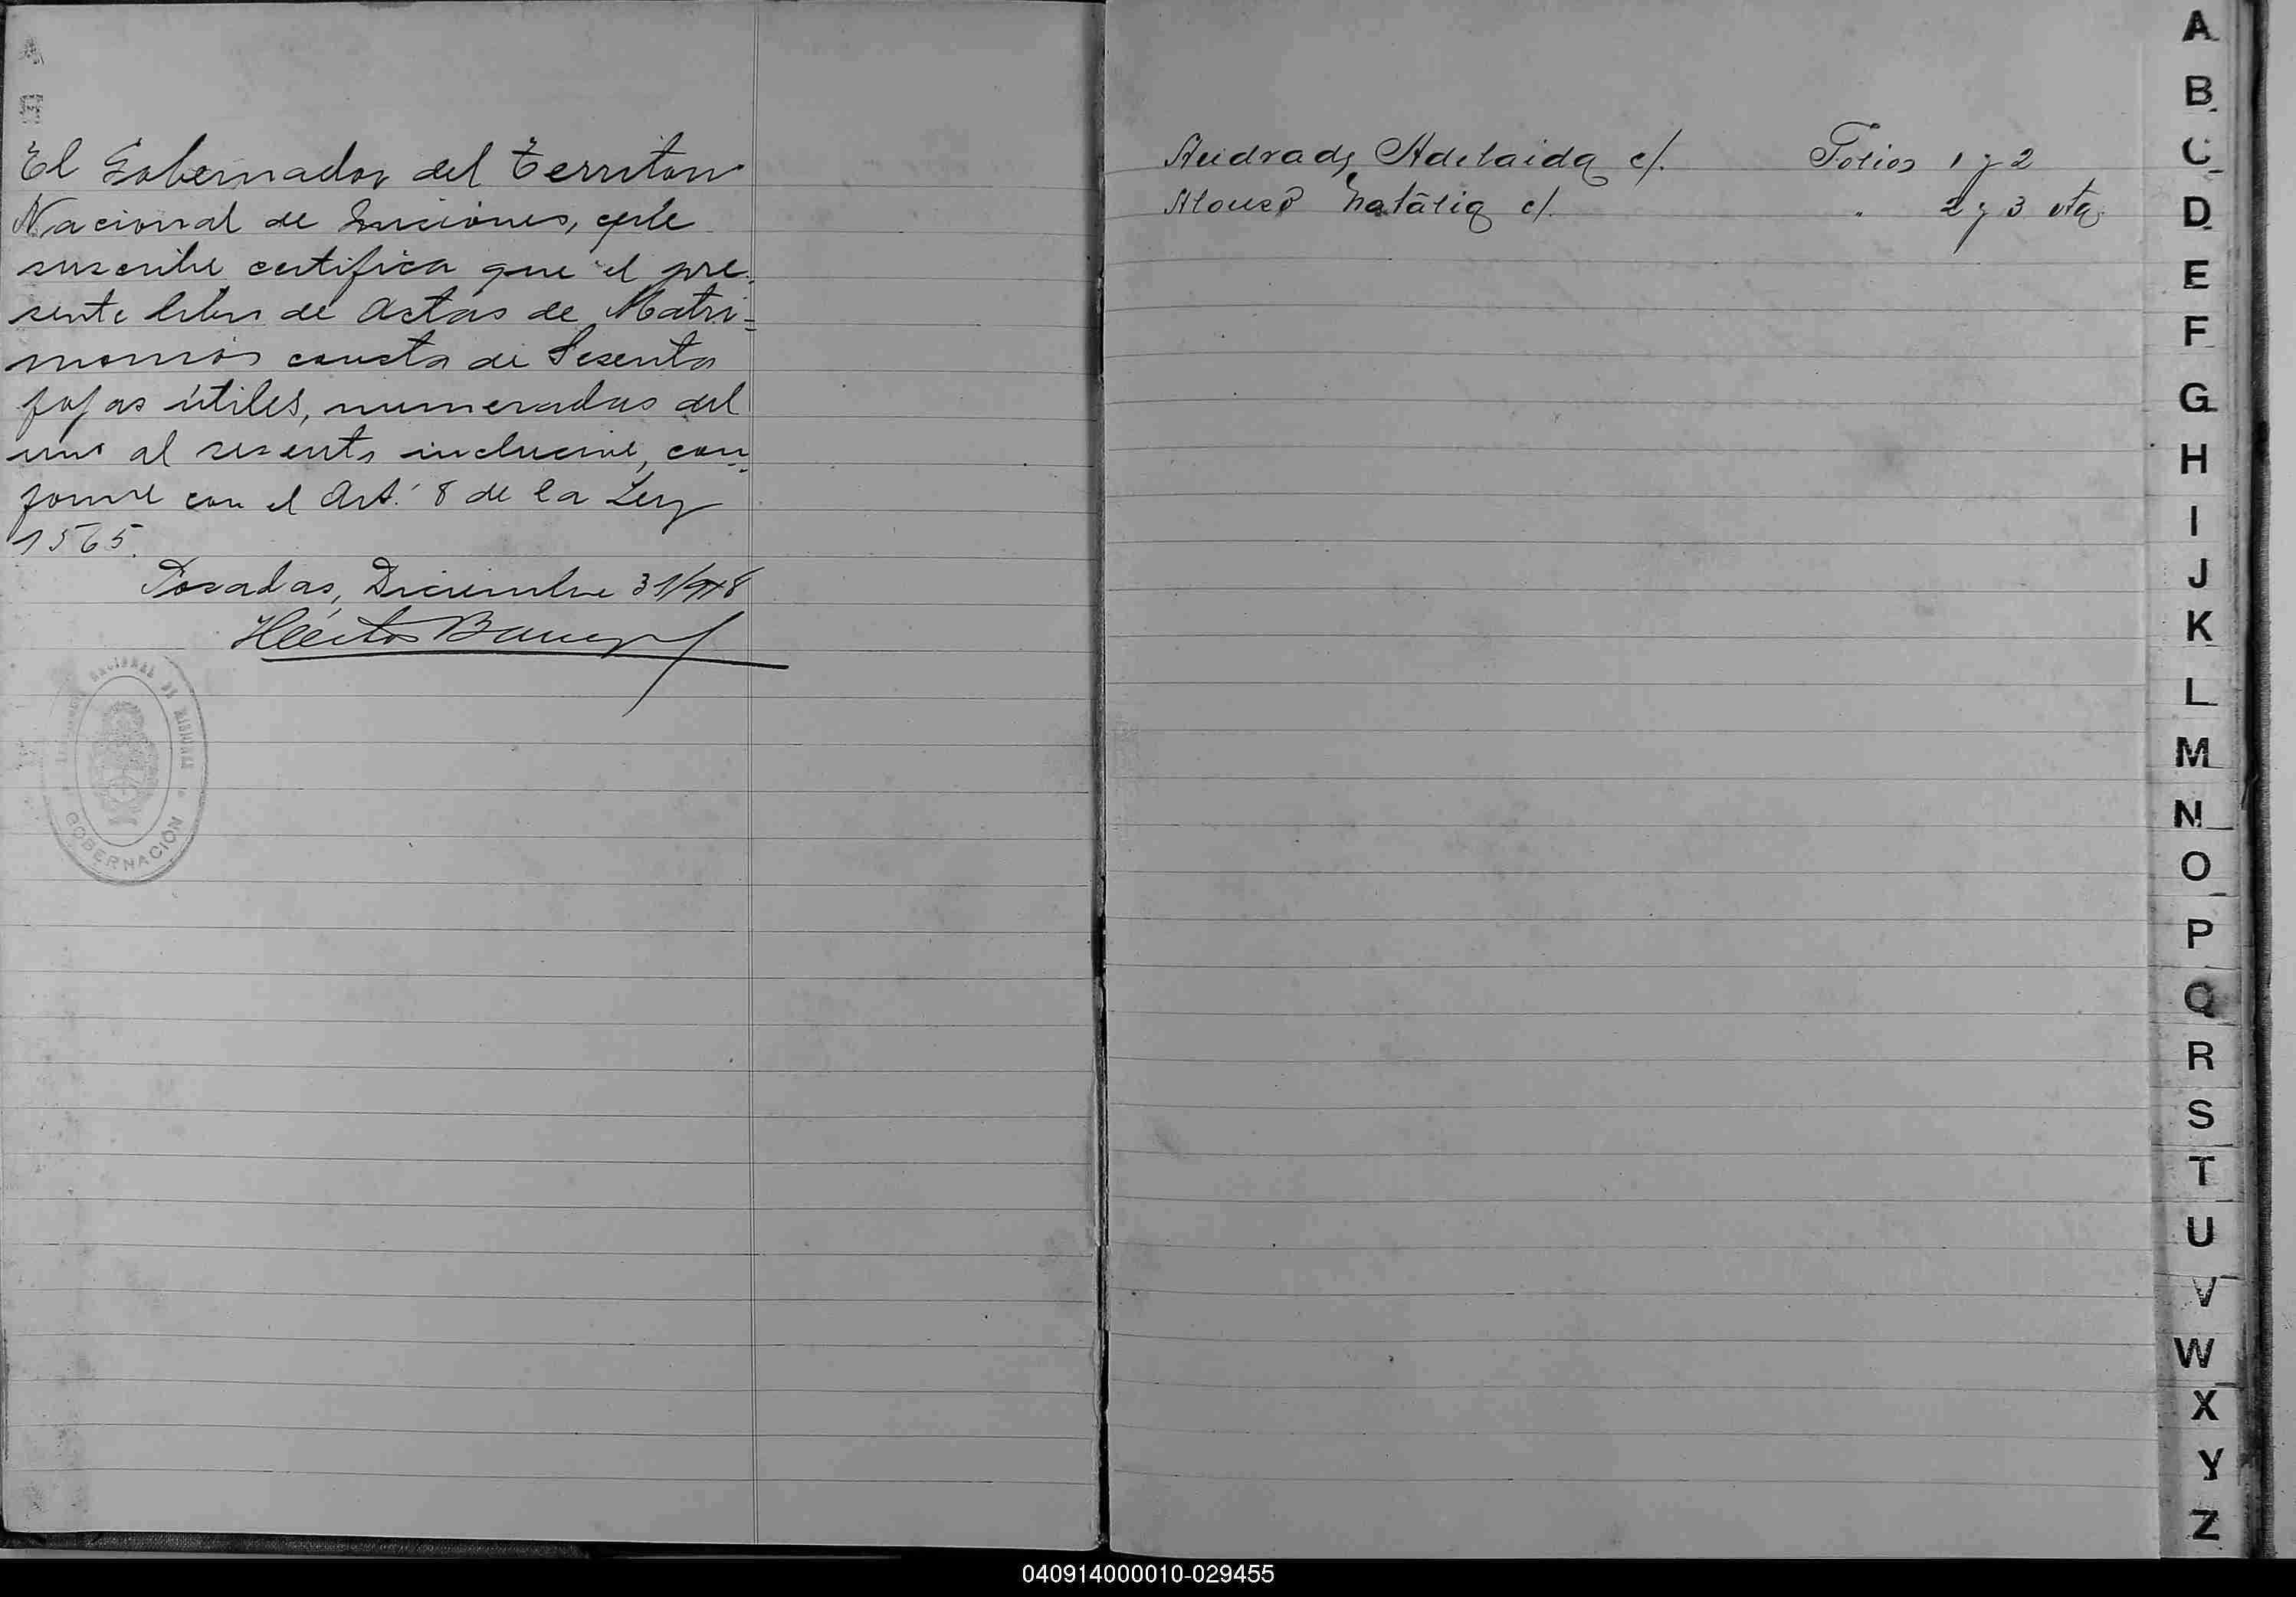 El Gobernador del Territorio
Nacional de Misiones, que
suscribe certifica que el pre-
sente libro de Actas de Matri=
monios consta de Sesenta
fojas útiles, numeradas del
uno al sesenta inclusive, con-
forme con el Art. 8 de la Ley
1565.
Posadas, Diciembre 31/918
Héctor
NACIONAL DE MISIONES
GOBERNACIÓN
Andrade Adelaida c/. Folios 1 y 2
Alonso Natália c/. " 2 y 3 vta.
A
B
C
D
E
F
G
H
I
J
K
L
M
N
O
P
Q
R
S
T
U
V
W
X
Y
Z
040914000010-029455